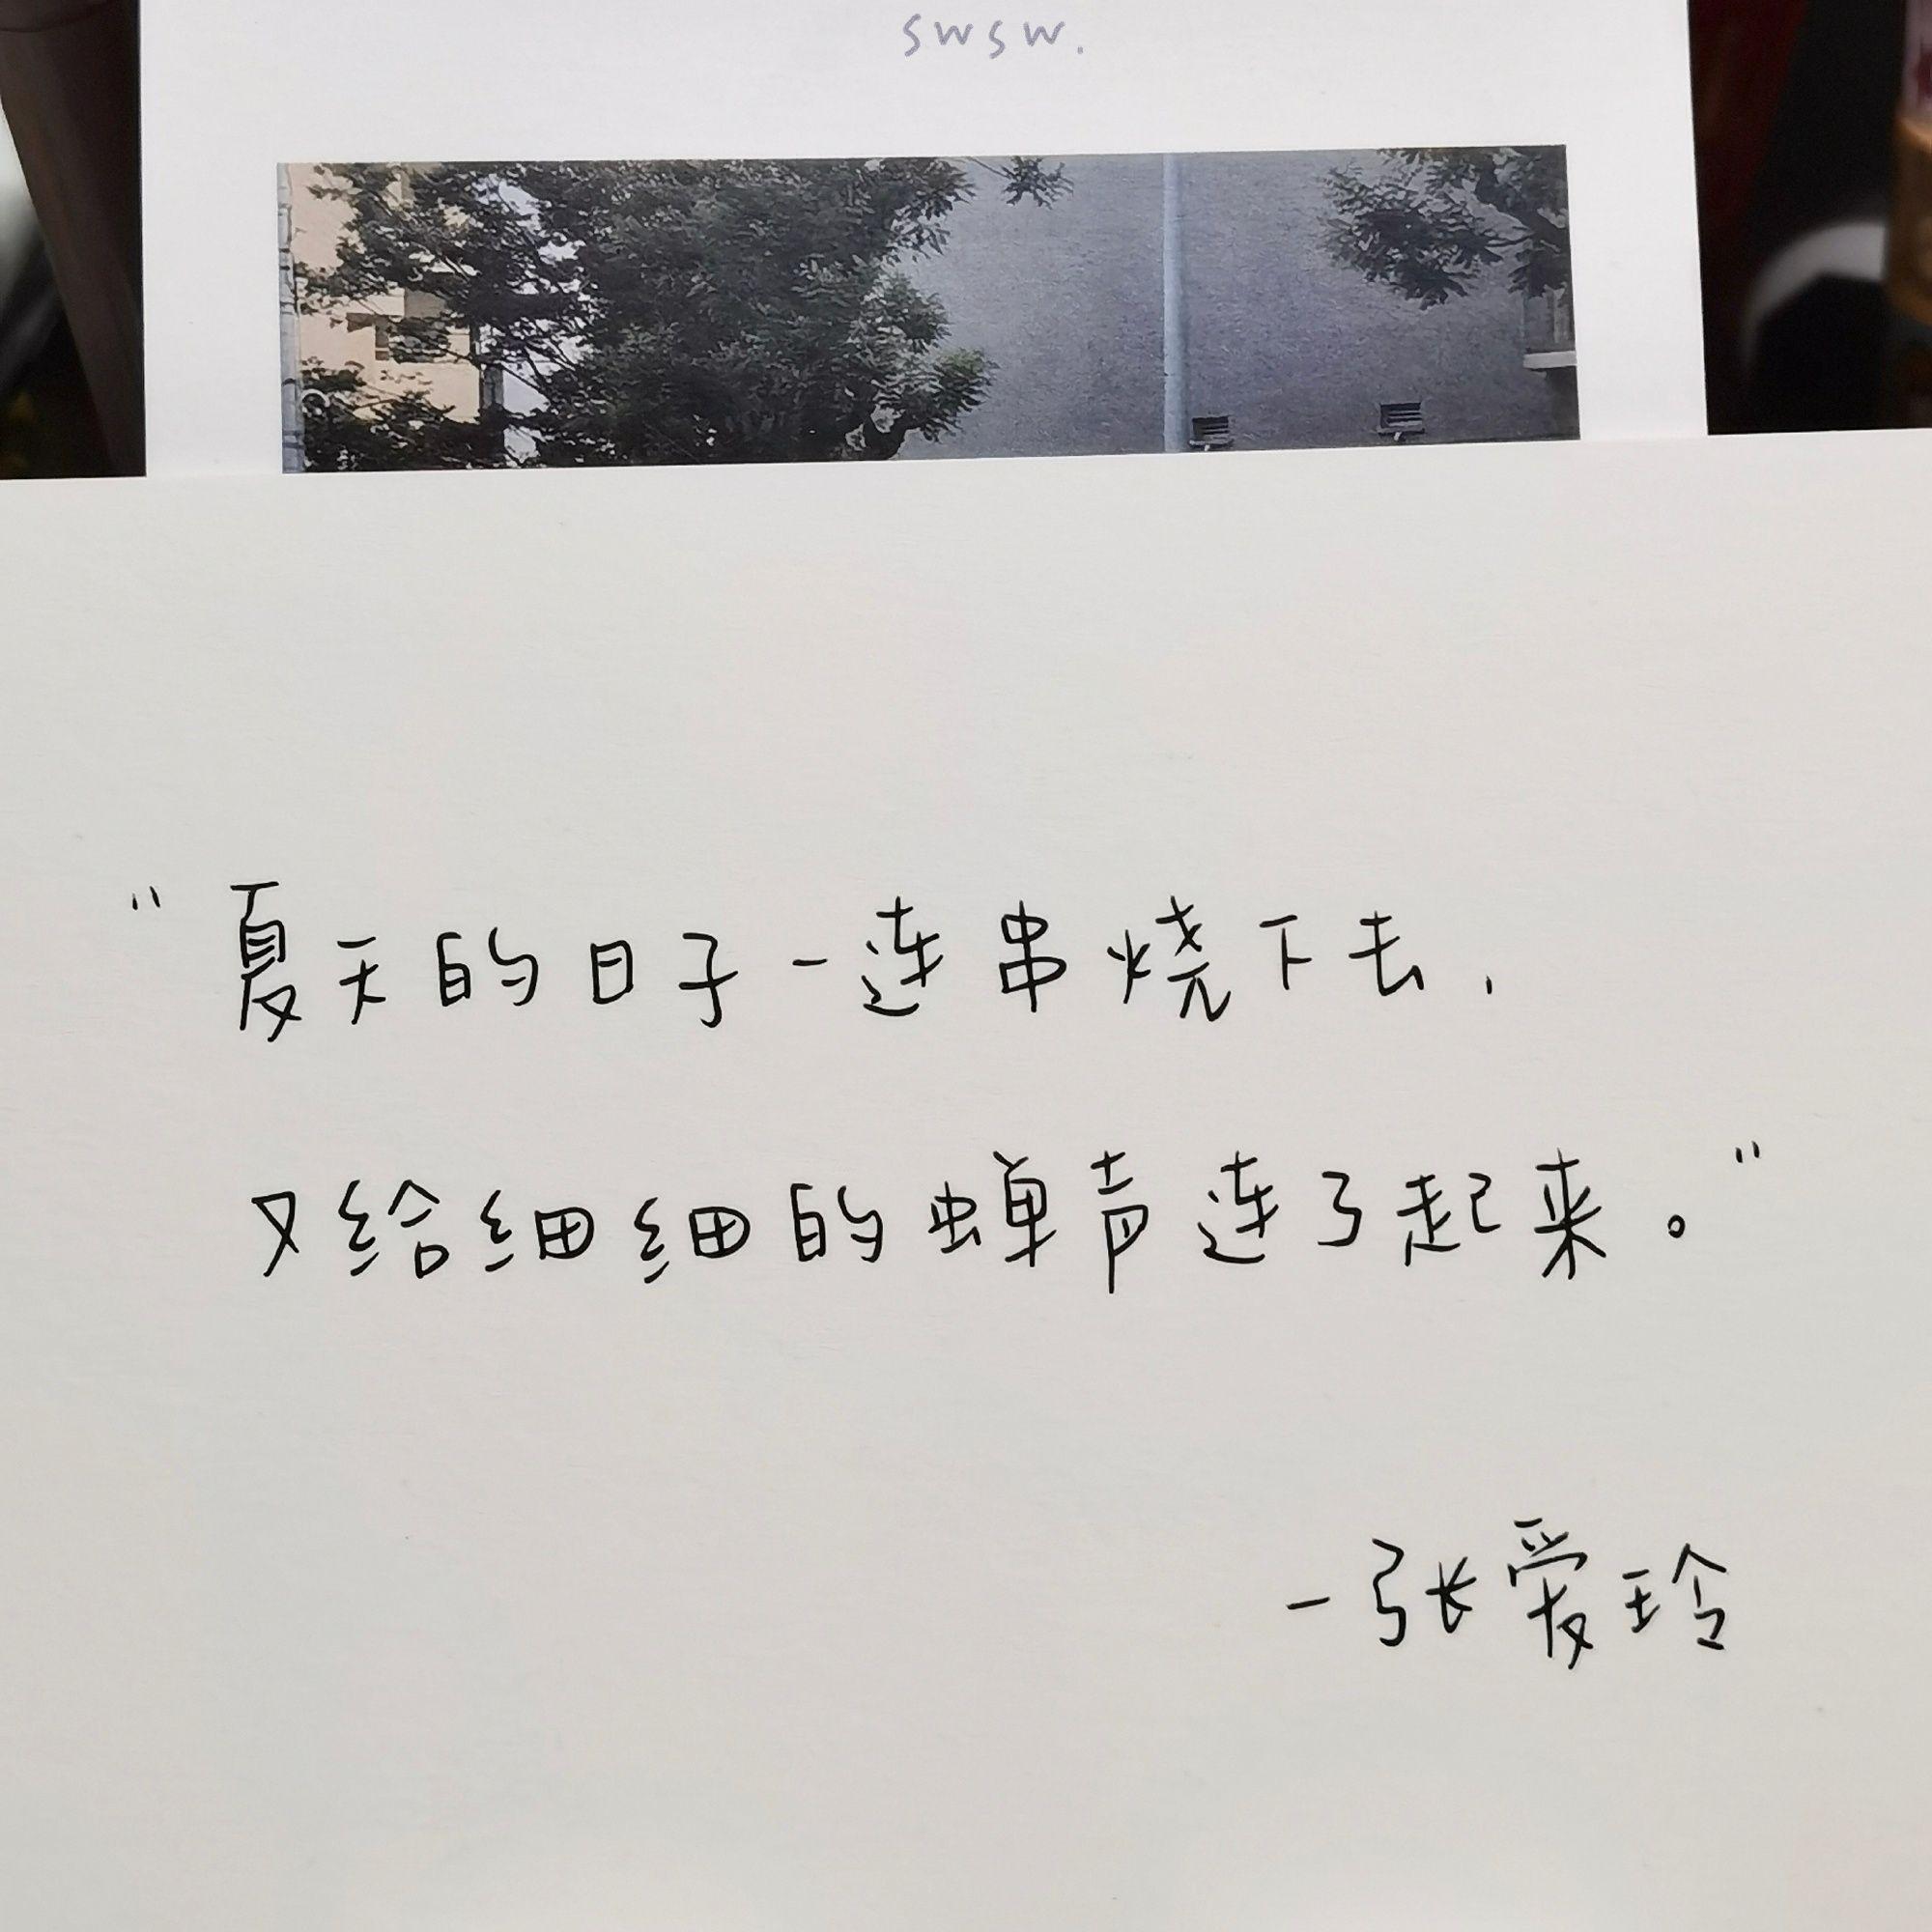 swsw.
“夏天的日子一连串烧下去,
又给细细的蝉声连了起来。”
-张爱玲